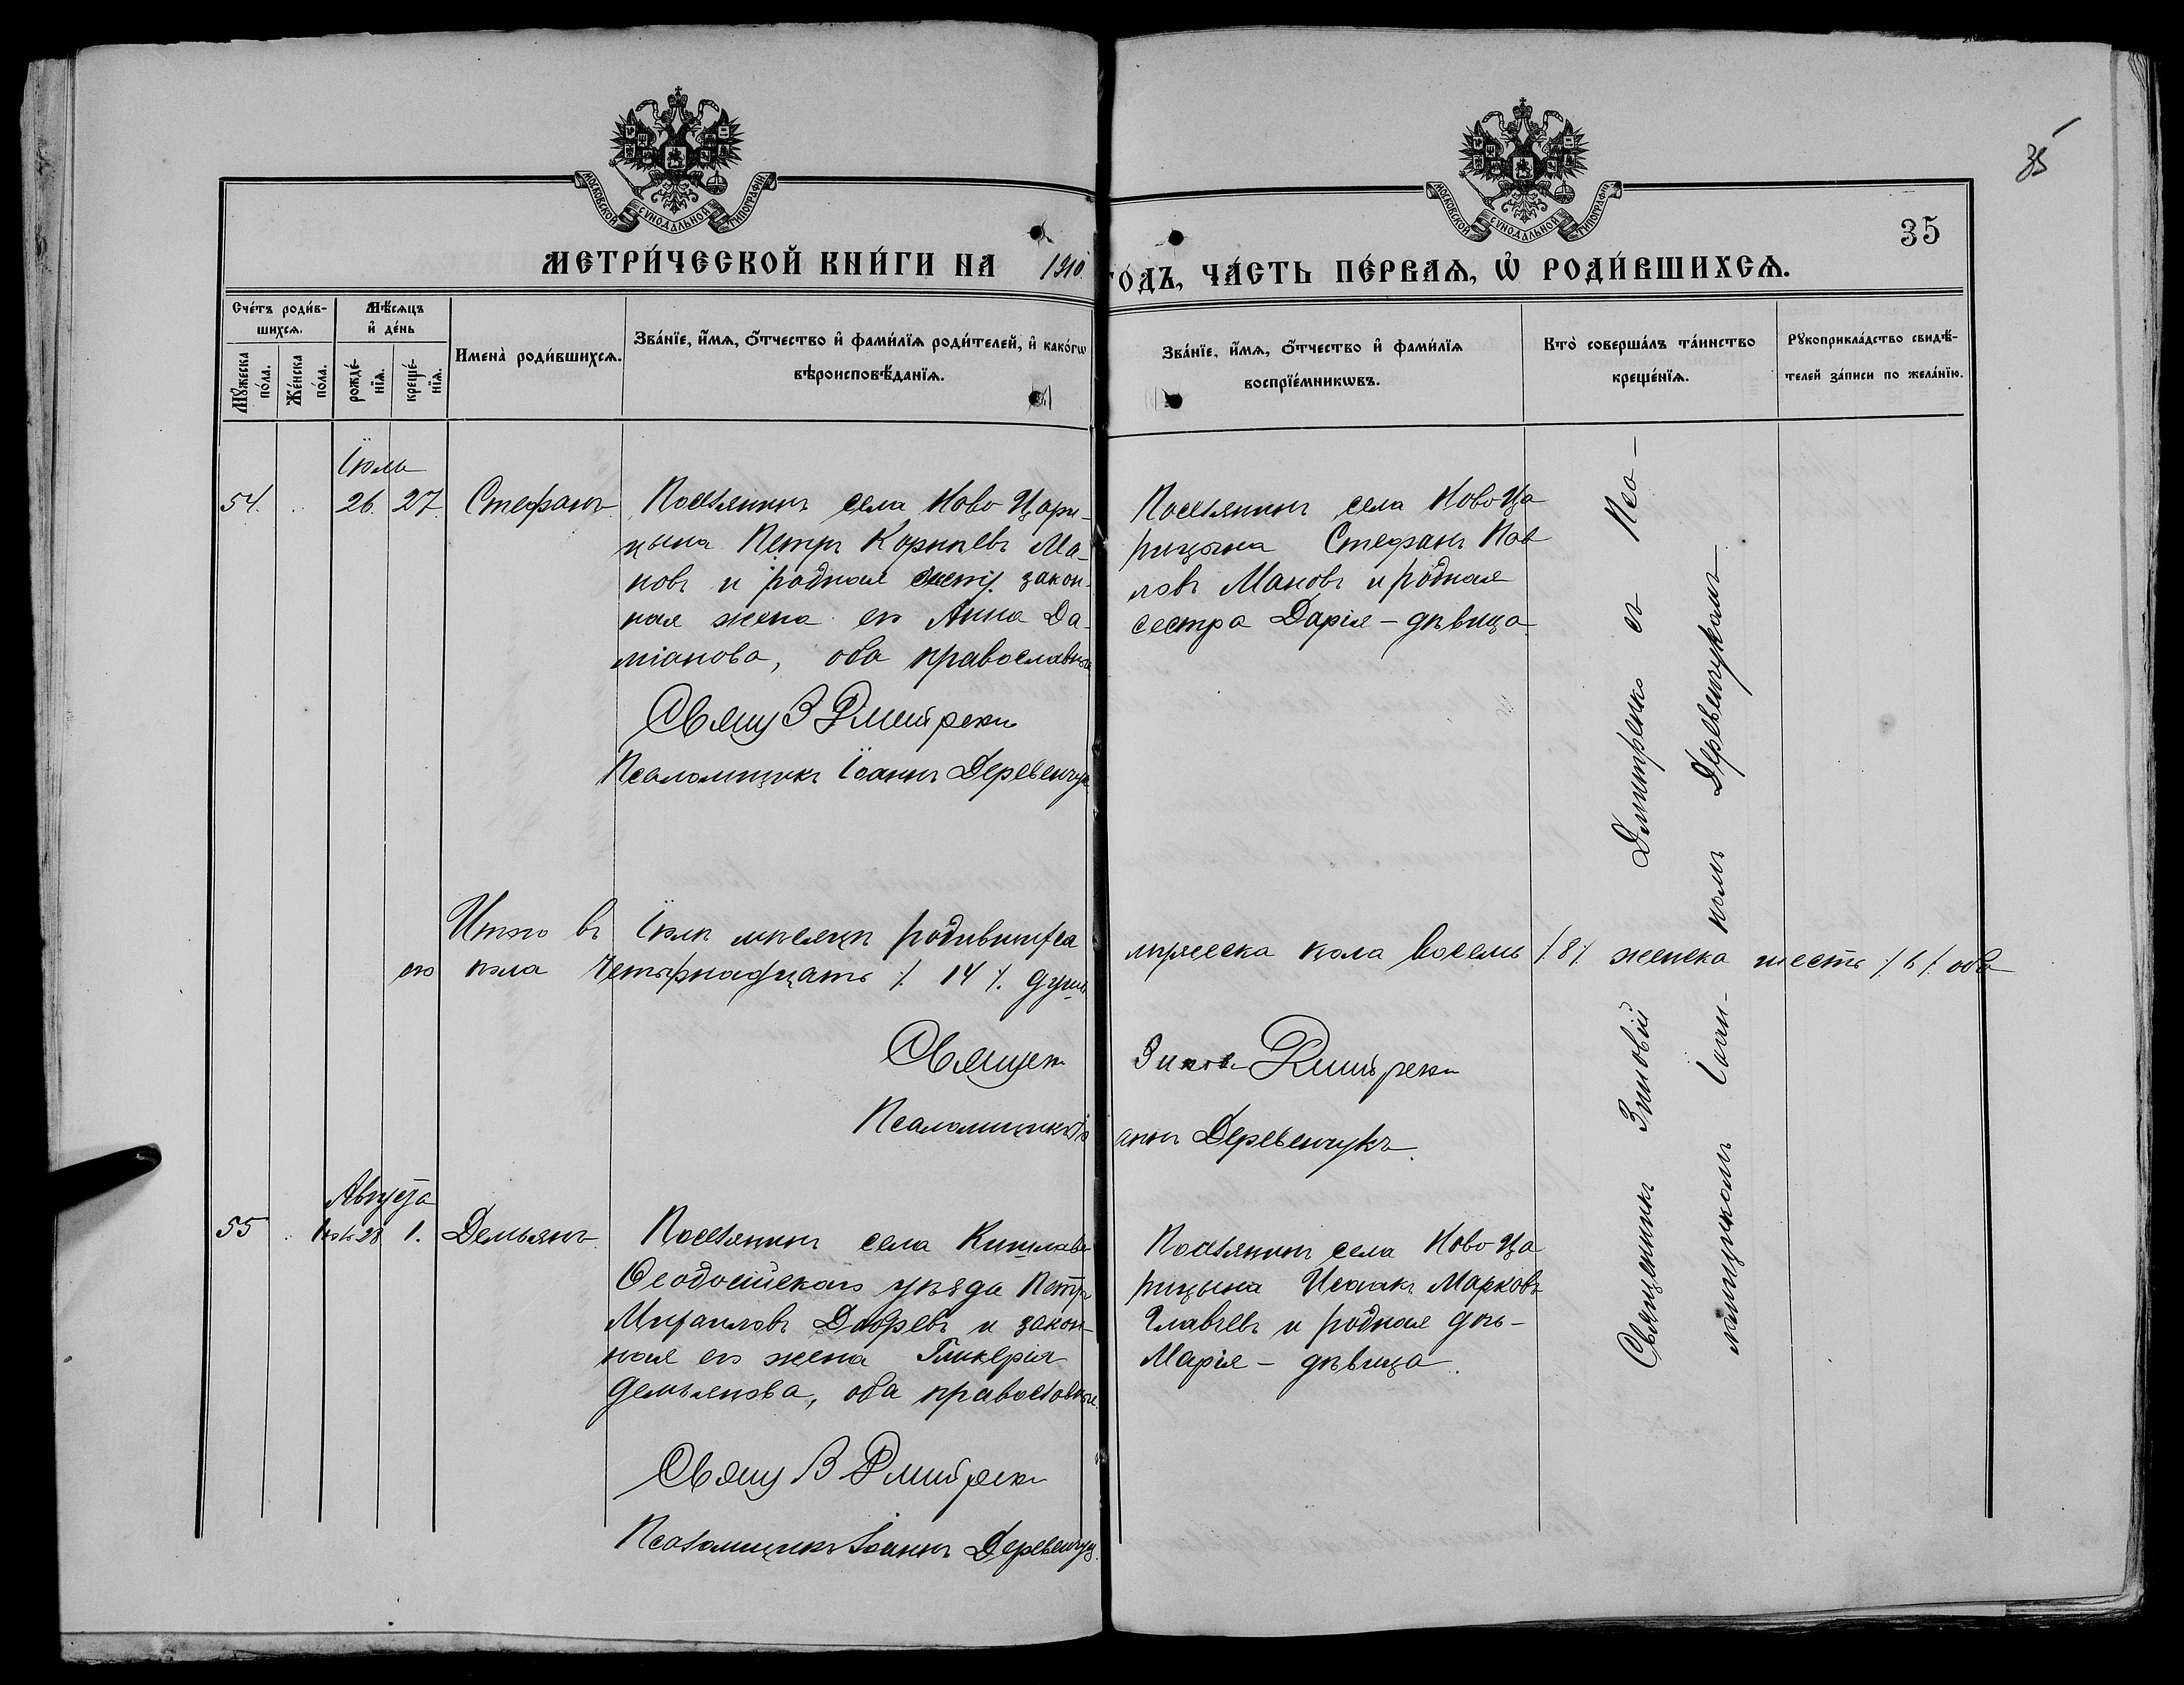 35
МОСКОВСКОЙ СѴНОДАЛЬНОЙ ТИПОГРАФІИ
МОСКОВСКОЙ СѴНОДАЛЬНОЙ ТИПОГРАФІИ
35
МЕТРИ́ЧЕСКОЙ КНИ́ГИ НА 1910 ГО́ДЪ, ЧА́СТЬ ПЕ́РВАѦ, Ѡ҆ РОДИ́ВШИХСѦ.
Сче́тъ роди́в-
шихсѧ.
Мꙋ́жеска по́ла.
Же́нска по́ла.
Мѣ́сѧцъ
и҆ де́нь
рожде́-
нїѧ.
креще́-
нїѧ.
Имена̀ роди́вшихсѧ.
Зва́нїе, и҆́мѧ, ѻ҆́тчество и҆ фами́лїѧ роди́телей, и҆ како́гѡ
вѣроисповѣ́данїѧ.
Зва́нїе, и҆́мѧ, ѻ҆́тчество и҆ фами́лїѧ
воспрїе́мникѡвъ.
Кто̀ соверша́лъ та́инство
креще́нїѧ.
Рꙋкоприкла́дство свидѣ́-
телей за́писи по жела́нїю.
Іюль
54. 26. 27. Стефанъ.
Поселянинъ села Ново Цари-
цына Петръ Корнѣевъ Ма-
новъ и закон-
ная жена его Анна Да-
міанова, оба православные
Свящ З Дмитренко
Псаломщикъ Іоаннъ Деревенчукъ
Поселянинъ села Ново Ца
рицына Стефанъ Пав
ловъ Мановъ и родная
сестра Дарія – дѣвица.
Священникъ Зиновій Дмитренко съ Пса-
ломщикомъ Іоан-номъ Деревенчукомъ
Итого въ Іюлѣ мѣсяцѣ родившихся мужеска пола восемь /8/. женска шесть /6/. обо
его пола четырнадцать /. 14 /. душъ
Священ Зинов Дмитренко
Псаломщикъ Іоаннъ Деревенчукъ.
Августа
55 Іюль 28 1. Демьянъ.
Поселянинъ села Кишлавъ
Ѳеодосійскаго уѣзда Петръ
Михаиловъ и закон-
ная его жена Гликерія
Демьянова, оба православные.
Свящ З Дмитренко
Псаломщикъ Іоаннъ Деревенчукъ.
Поселянинъ села Ново Ца
рицына Исаакъ Марковъ
Главчевъ и родная дочь –
Марія – дѣвица.